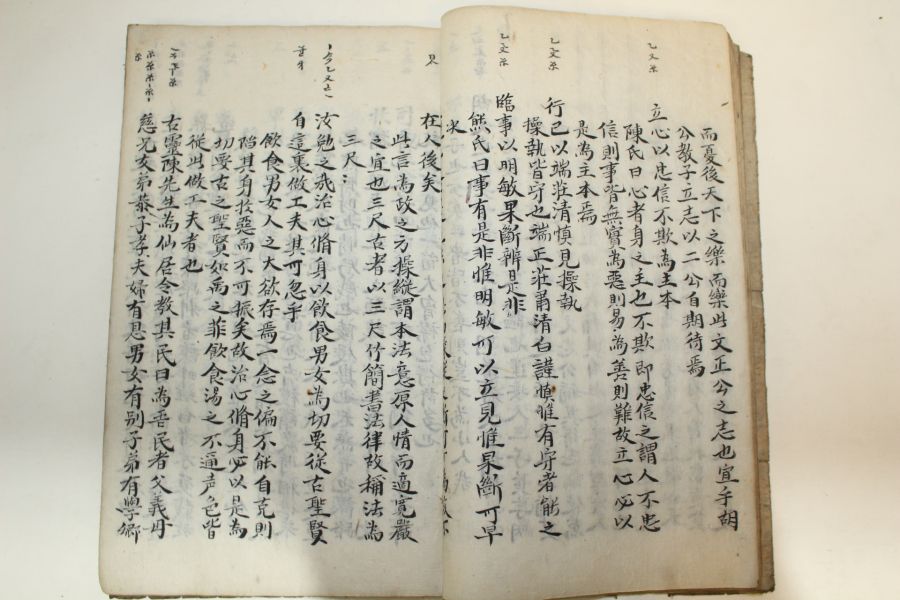 乙文 
乙文 
乙文 
而憂後天下之樂而樂此文正公之志也宜乎胡
公教子立志以二公自期待焉
立心以忠信不欺為主本
陳氏曰心者身之主也不欺即忠信之謂人不忠
信則事皆無實為惡則易為善則難故立心必以
是為主本焉
行己以端莊清慎見操執
操執皆守也端正莊肅清白謹慎惟有守者能之
臨事以明敏果斷辨是非
熊氏曰事有是非惟明敏可以立見惟果斷可早
决
在人後矣
此言為政之方操縱謂本法意原人情而適寬嚴
之宜也三尺古者以三尺竹簡書法律故稱法為
三尺
汝勉之哉治心脩身以飲食男女為切要從古聖賢
自這裏做工夫其可忽乎
飲食男女人之大欲存焉一念之偏不能自克則
陷其身於惡而不可振矣故治心脩身必以是為
切要古之聖賢如禹之菲飲食湯之不邇声色皆
從此做工夫者也
古靈陳先生為仙居令教其民曰為吾民者父義母
慈兄友弟恭子孝夫婦有恩男女有別子弟有學鄉